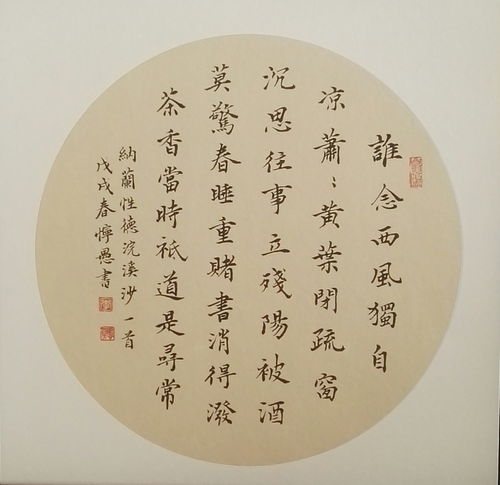 誰念西風獨自
涼蕭〻黃葉閉疏窗
沉思往事立殘陽被酒
莫驚春睡重賭書消得潑
茶香當時祇道是尋常
納蘭性德浣溪沙一首
戊戌春懧愚書